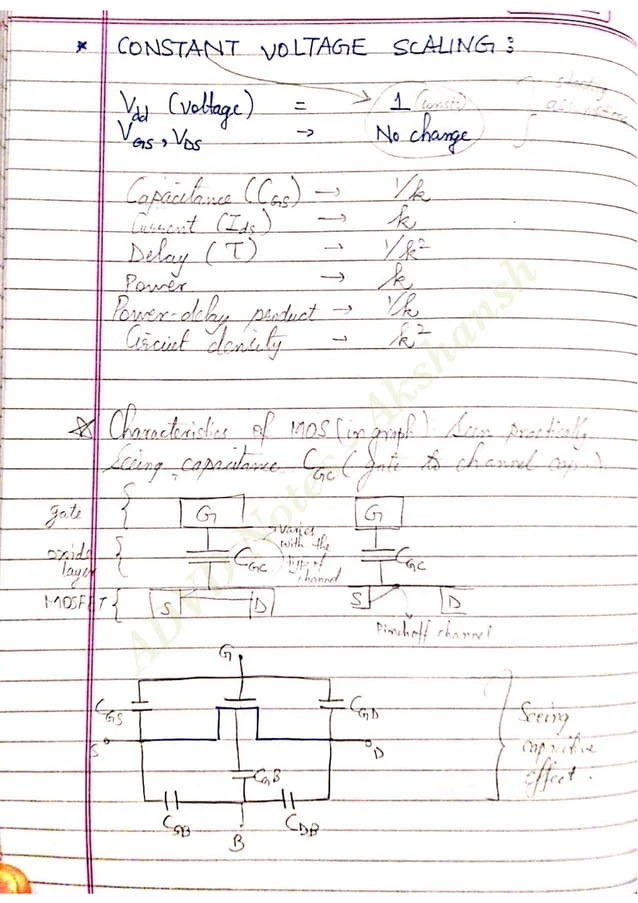 * CONSTANT VOLTAGE SCALING :
Vdd (voltage) = 1 (const)
VGS, VDS → No change
starting
Capacitance (CGS) → 1/k
Current (Ids) → k
Delay (τ) → 1/k²
Power → k
Power-delay product → 1/k
Circuit density → k²
* Characteristics of MOS (in graph). Seen practically
Seeing capacitance CGC (gate to channel cap.)
gate { G G
oxide layer { CGC varies with the type of channel CGC
MOSFET { S D S D
Pinchoff channel
G
CGS CGD
S D
CGB
CSB CDB
B
Seeing
capacitive
effect.
ADVD Notes Akshansh